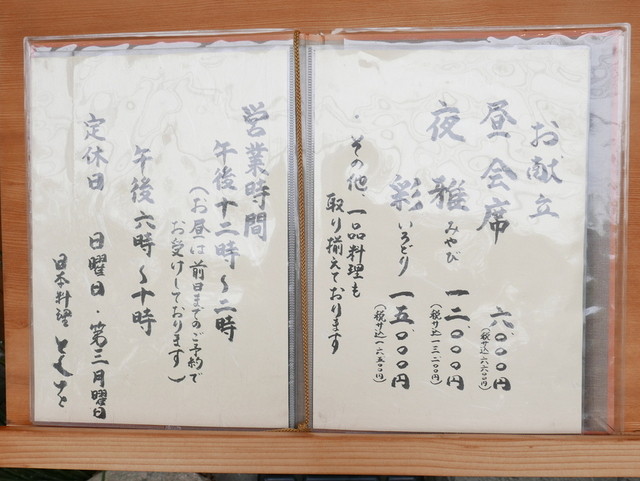 お献立
昼 会席 六、〇〇〇円
(税サ込六六〇〇円)
夜 雅 みやび 一二、〇〇〇円
(税サ込一三、二〇〇円)
彩 いろどり 一五、〇〇〇円
(税サ込一六、五〇〇円)
・その他、一品料理も
取り揃えております
営業時間
午後十二時〜二時
(お昼は前日までのご予約で
お受けしております)
午後六時〜十時
定休日 日曜日・第三月曜日
日本料理